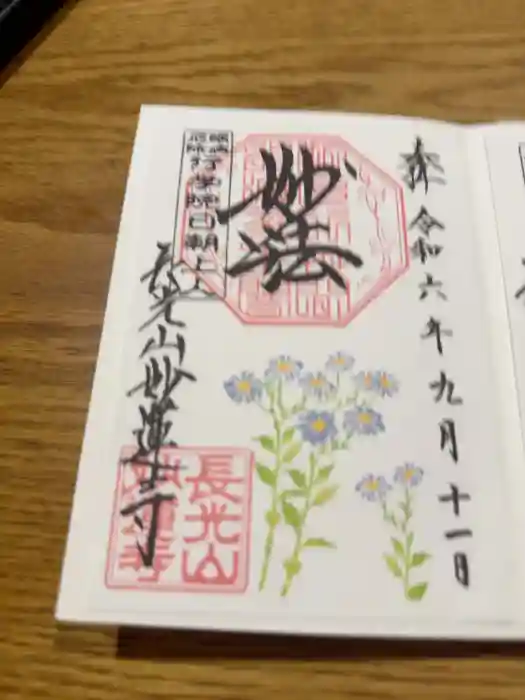 奉 令和六年九月十一日
妙法
行学院日朝上人
長光山妙蓮寺
長光山
妙蓮寺